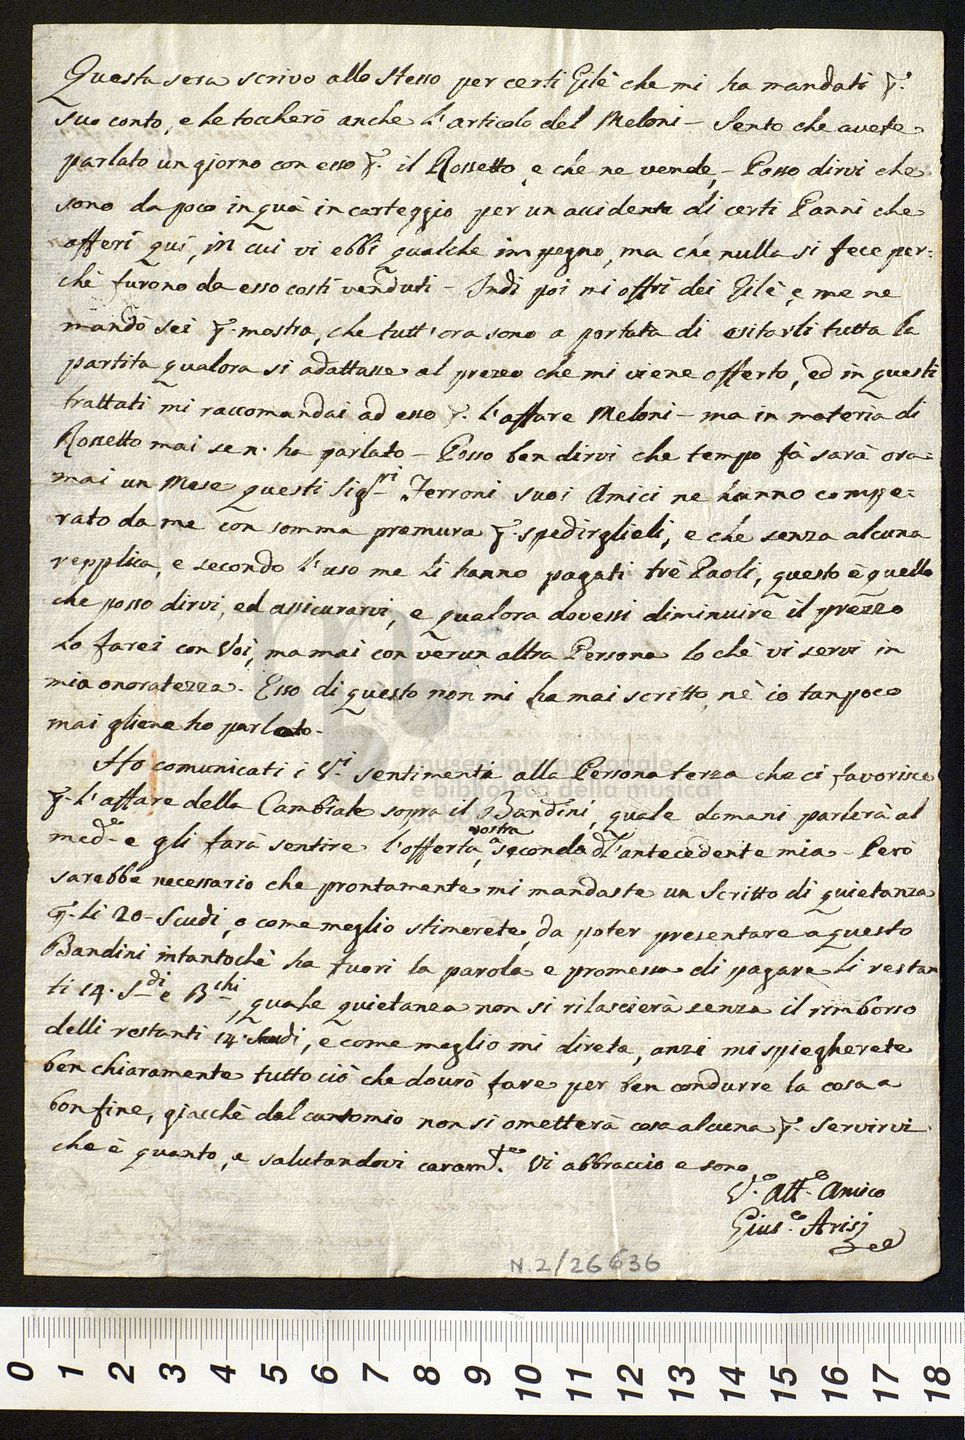 Questa sera scrivo allo stesso per certi Gilè che mi ha mandati p.
suo conto, e le toccherò anche l'articolo del Meloni - Sento che avete
parlato un giorno con esso p. il Rossetto, e che ne vende, - Posso dirvi che
sono da poco in quà in carteggio per un accidente di certi Panni che
afferì quì, in cui vi ebbi qualche impegno, ma che nulla si fece per=
chè furono da esso costì venduti - Indi poi mi offrì dei Gilè, e me ne
mandò sei p. mostra, che tutt'ora sono a portata di esitarli tutta la
partita qualora si adattasse al prezzo che mi viene offerto, ed in questi
trattati mi raccomandai ad esso p. l'affare Meloni - ma in materia di
Rossetto mai se n. ha parlato - Posso ben dirvi che tempo fà sarà ora=
mai un Mese questi Sig.ri Ferroni suoi Amici ne hanno compe=
rato da me con somma premura p. spedirglieli, e che senza alcuna
repplica, e secondo l'uso me li hanno pagati trè Paoli, questo è quello
che posso dirvi, ed assicurarvi, e qualora dovessi diminuire il prezzo
lo farei con Voi, ma mai con verun altra Persona lo chè vi servi in
mia onoratezza. Esso di questo non mi ha mai scritto, nè io tanpoco
mai gliene ho parlato.
Ho comunicati i V.i sentimenti alla Persona terza che ci favorisce
p. l'affare della Cambiale sopra il Bandini, quale domani parlerà al
med.o e gli farà sentire l'offerta vostra, a seconda dell'antecedente mia - Però
sarebbe necessario che prontamente mi mandaste un Scritto di quietanza
p. li 20 - Scudi, o come meglio stimerete, da poter presentare a questo
Bandini intantochè ha fuori la parola e promessa di pagare li restan
ti 14. S.di e B.chi, quale quietanza non si rilascierà senza il rimborso
delli restanti 14. Scudi, e come meglio mi direte, anzi mi spiegherete
ben chiaramente tutto ciò che dourò fare per ben condurre la cosa a
bon fine, giacchè dal canto mio non si ometterà cosa alcuna p. servirvi
che è quanto, e salutandovi caram.te vi abbraccio e sono
V.o Aff.o Amico
Gius.e Arisj
N.2/26636
museo internazionale
e biblioteca della musica
0 1 2 3 4 5 6 7 8 9 10 11 12 13 14 15 16 17 18